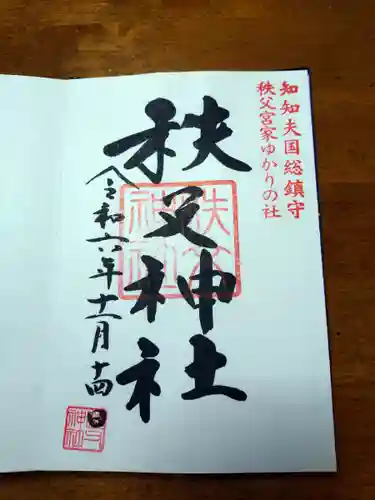 知知夫国総鎮守
秩父宮家ゆかりの社
秩父神社
秩父神社
令和六年十一月十四